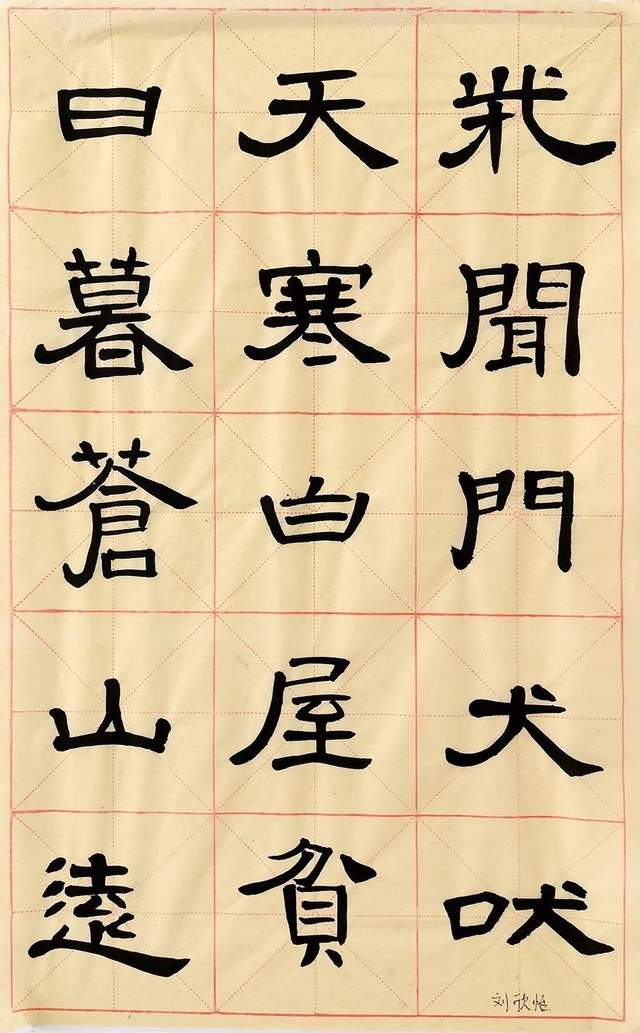 日暮蒼山遠
天寒白屋貧
柴聞門犬吠
刘欣怡